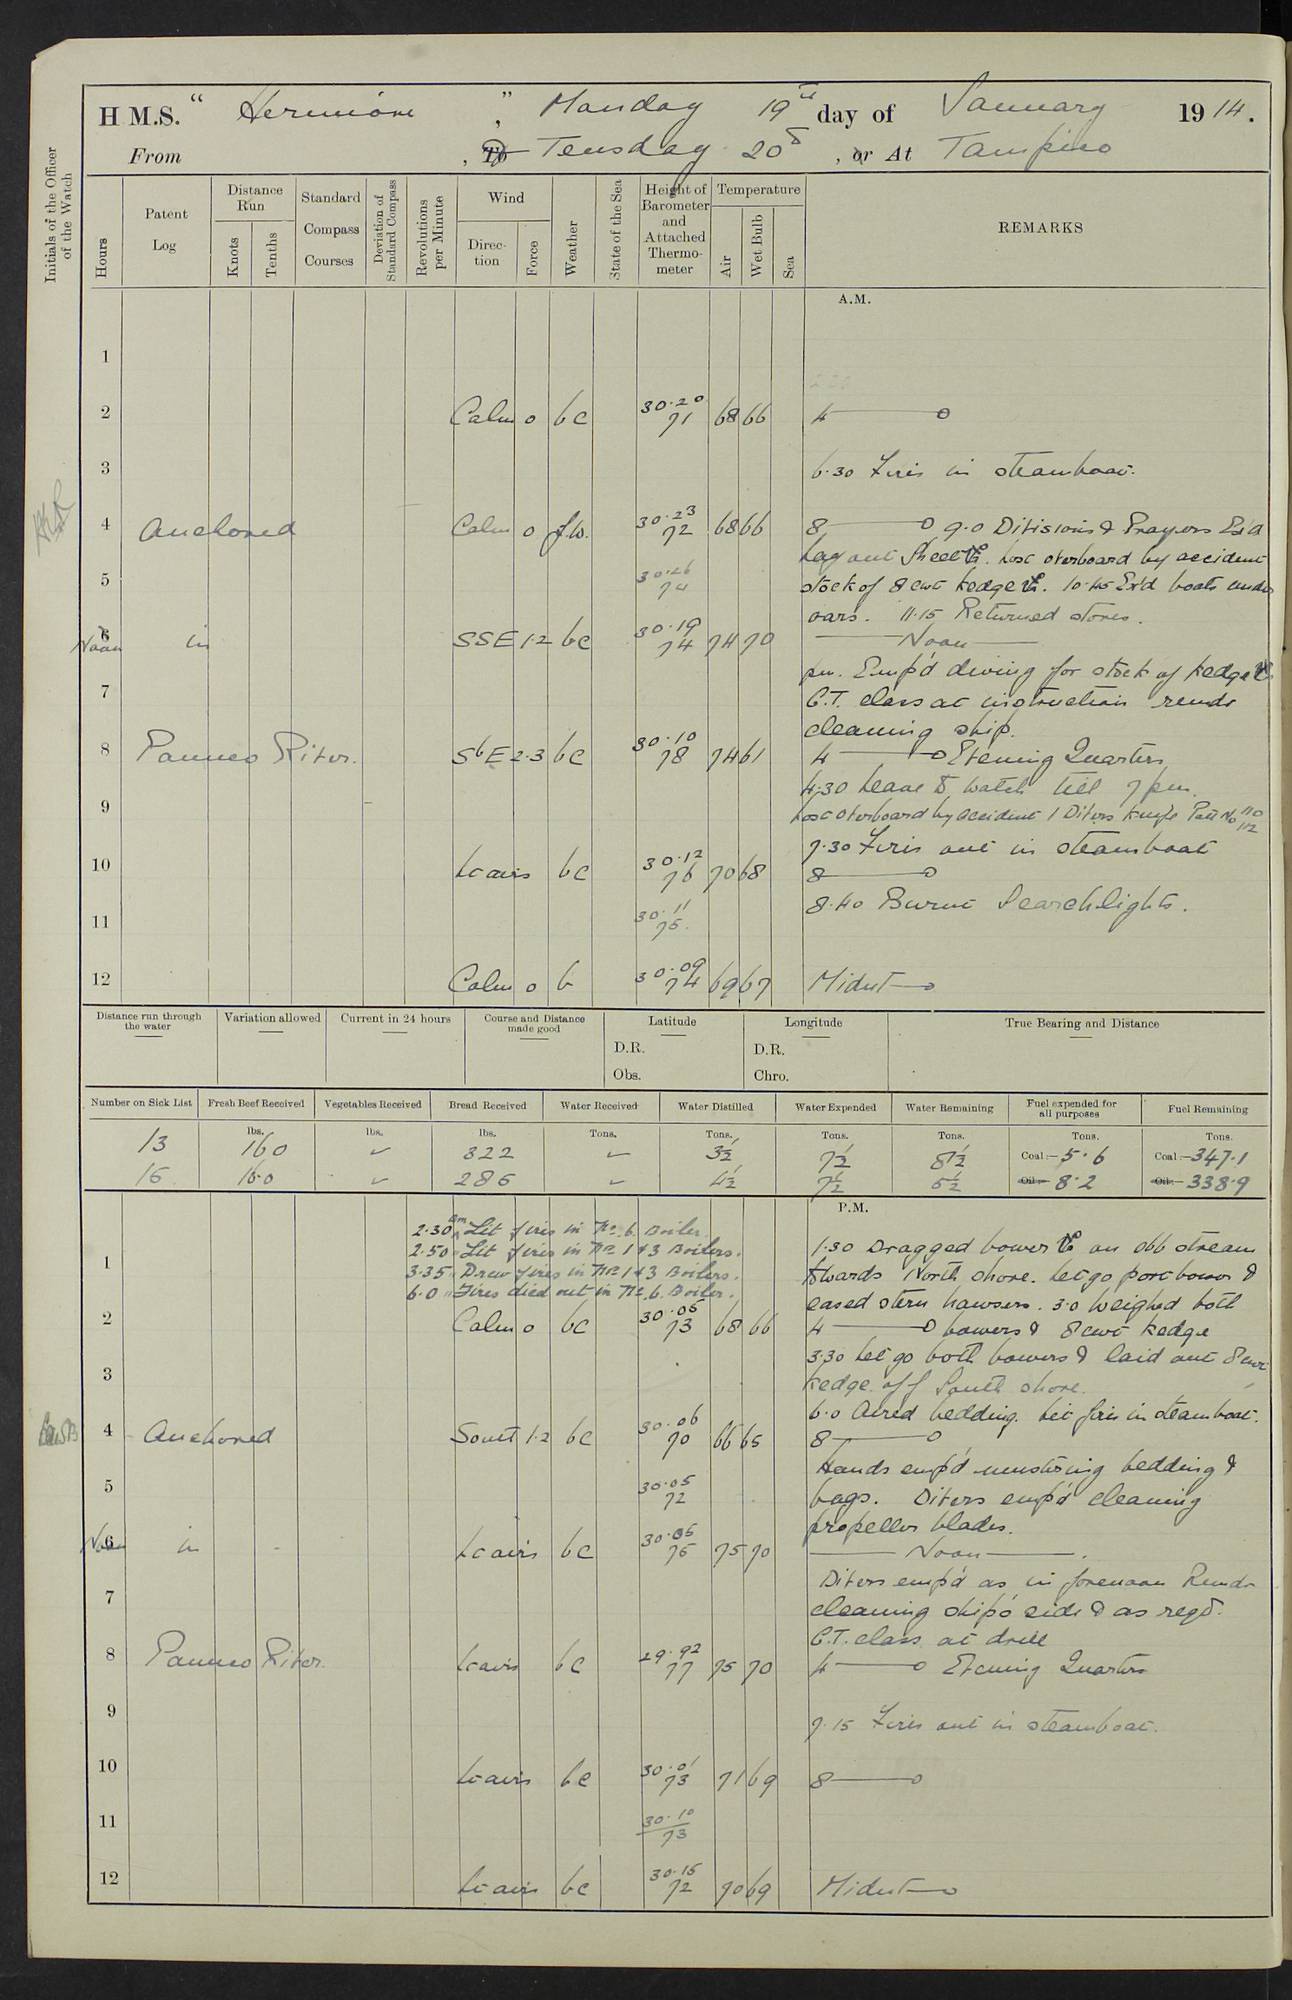 H.M.S. " Hermione ", Monday 19th day of January 1914.
From , To Teusday 20th , or At Tampico
Initials of the Officer of the Watch
Hours
Patent Log
Distance Run
Knots
Tenths
Standard Compass Courses
Deviation of Standard Compass
Revolutions per Minute
Wind
Direction
Force
Weather
State of the Sea
Height of Barometer and Attached Thermometer
Temperature
Air
Wet Bulb
Sea
REMARKS
A.M.
1
2 Calm 0 bc 30.20 71 68 66 4
3 6.30 Fires in steamboat.
4 Anchored Calm 0 f.w. 30.23 72 68 66 8 9.0 Divisions & Prayers Ex'd
lay out Sheet ⚓. Lost overboard by accident
5 30.26 74 stock of 8 cwt kedge ⚓. 10.45 Ex'd boats under
oars. 11.15 Returned stores.
6 Noon in SSE 1.2 bc 30.19 74 74 70 Noon
pm. Emp'd diving for stock of kedge ⚓
7 G.T. class at instruction remdr
cleaning ship.
8 Panuco River. SbE 2.3 bc 30.10 78 74 61 4 Evening Quarters
4.30 Leave to watch till 7 pm.
9 Lost overboard by accident 1 Divers knife Patt No 110 112
7.30 Fires out in steamboat
10 Lt airs bc 30.12 76 70 68 8
11 30.11 75. 8.40 Burnt Searchlights.
12 Calm 0 b 30.09 74 69 67 Midnt
Distance run through the water
Variation allowed
Current in 24 hours
Course and Distance made good
Latitude
D.R.
Obs.
Longitude
D.R.
Chro.
True Bearing and Distance
Number on Sick List
Fresh Beef Received
Vegetables Received
Bread Received
Water Received
Water Distilled
Water Expended
Water Remaining
Fuel expended for all purposes
Fuel Remaining
lbs. lbs. lbs. Tons. Tons. Tons. Tons. Tons. Tons.
13 160 ✓ 322 ✓ 3½ 7½ 8½ Coal:- 5.6 Coal:- 347.1
15 160 ✓ 286 ✓ 4½ 7½ 5½ Oil:- 8.2 Oil:- 338.9
P.M.
2.30 am Lit fires in No. 6 Boiler.
2.50 " Lit fires in No 1 & 3 Boilers.
3.35 " Drew fires in No 1 & 3 Boilers.
6.0 " Fires died out in No. 6. Boiler.
1 1.30 Dragged bower ⚓ on ebb stream
towards North shore. Let go port bower &
eased stern hawsers. 3.0 Weighed both
2 Calm 0 bc 30.05 73 68 66 4 bowers & 8 cwt kedge
3.30 Let go both bowers & laid out 8 cwt
3 kedge off South shore.
6.0 Aired bedding. Lit fires in steamboat.
4 Anchored South 1.2 bc 30.06 70 66 65 8
Hands emp'd mustering bedding &
5 30.05 72 bags. Divers emp'd cleaning
propeller blades.
6 Noon in Lt airs bc 30.05 75 75 70 Noon
Divers emp'd as in forenoon Remdr
7 cleaning ship's side & as reqd.
G.T. class at drill
8 Panuco River. Lt airs bc 29.92 77 75 70 4 Evening Quarters
9 7.15 Fires out in steamboat.
10 Lt airs bc 30.01 73 71 69 8
11 30.10 73
12 Lt airs bc 30.15 72 70 69 Midnt